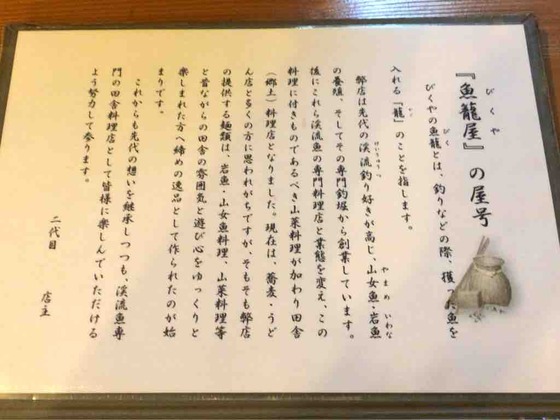 『魚籠屋』の屋号
びくや
びくやの魚籠とは、釣りなどの際、獲った魚を
びく
入れる『籠』のことを指します。
かご
弊店は先代の渓流釣り好きが高じ、山女魚・岩魚
けいりゅう
やまめ
いわな
の養殖、そしてその専門釣堀から創業しています。
後にこれら渓流魚の専門料理店と業態を変え、この
料理に付きものであるべき山菜料理が加わり田舎
（郷土）料理店となりました。現在は、蕎麦・うど
ん店と多くの方に思われがちですが、そもそも弊店
の提供する麺類は、岩魚・山女魚料理、山菜料理等
と昔ながらの田舎の雰囲気と遊び心をゆっくりと
楽しまれた方へ締めの逸品として作られたのが始
まりです。
これからも先代の想いを継承しつつも、渓流魚専
門の田舎料理店として皆様に楽しんでいただける
よう努力して参ります。
二代目 店主